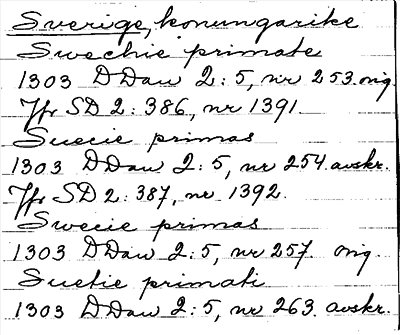 Sverige, konungarike
Swechie primate
1303 DDan 2:5, nr 253. orig.
Jfr SD 2:386, nr 1391.
Suecie primas
1303 DDan 2:5, nr 254. avskr.
Jfr SD 2:387, nr 1392.
Swecie primas
1303 DDan 2:5, nr 257. orig.
Suetie primati
1303 DDan 2:5, nr 263. avskr.